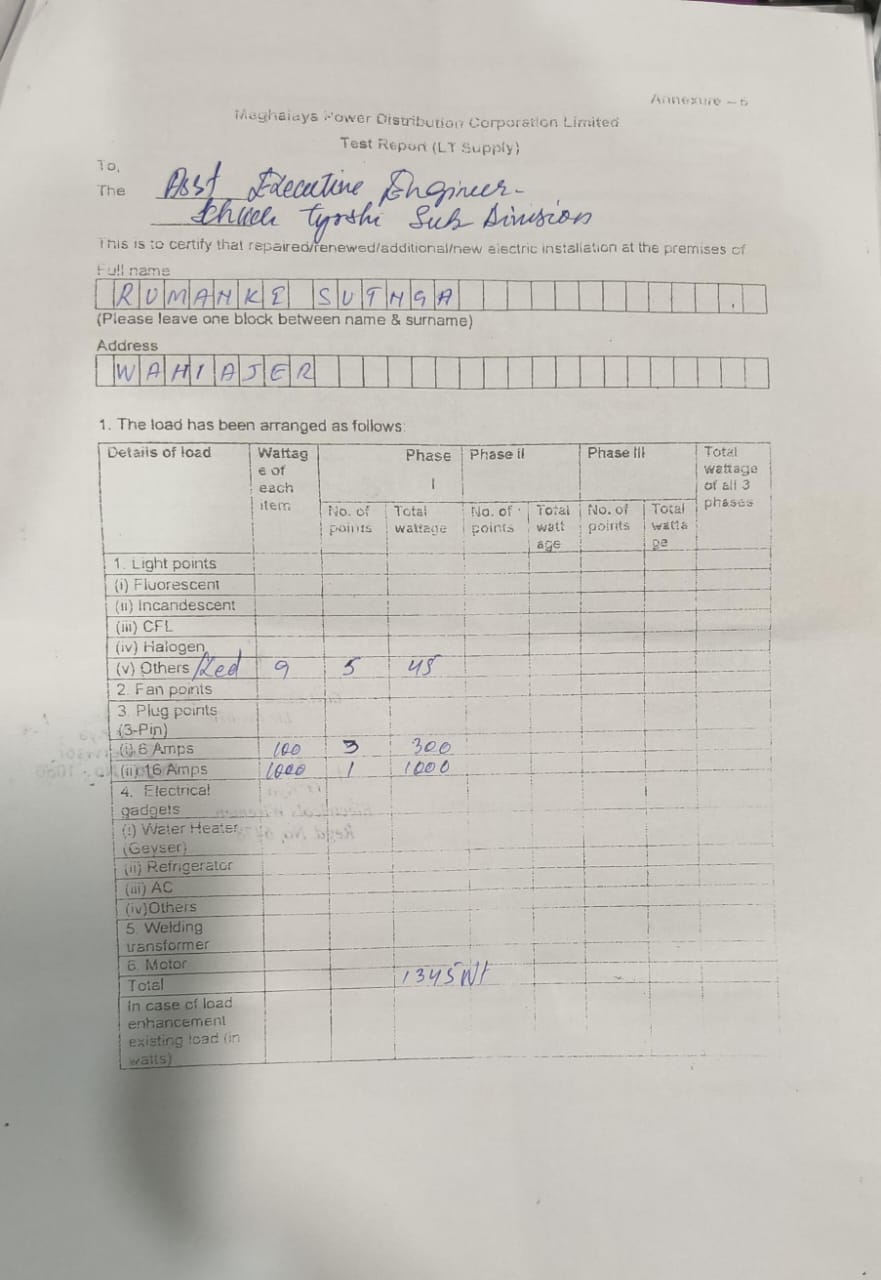 Annexure – 6
Meghalaya Power Distribution Corporation Limited
Test Report (LT Supply)
To,
The Asst Executive Engineer-
Tyrshi Sub Division
This is to certify that repaired/renewed/additional/new electric installation at the premises of
Full name
RUMANKI SUTNGA
(Please leave one block between name & surname)
Address
WAHIAJER
1. The load has been arranged as follows:
Details of load Wattage of each item Phase I Phase II Phase III Total wattage of all 3 phases
No. of points Total wattage No. of points Total wattage No. of points Total wattage
1. Light points
(i) Fluorescent
(ii) Incandescent
(iii) CFL
(iv) Halogen
(v) Others Led 9 5 45
2. Fan points
3. Plug points
(3-Pin)
(i) 6 Amps 100 3 300
(ii) 16 Amps 1000 1 1000
4. Electrical
gadgets
(i) Water Heater
(Geyser)
(ii) Refrigerator
(iii) AC
(iv) Others
5. Welding
transformer
6. Motor
Total 1345 Wt
In case of load
enhancement
existing load (in
watts)